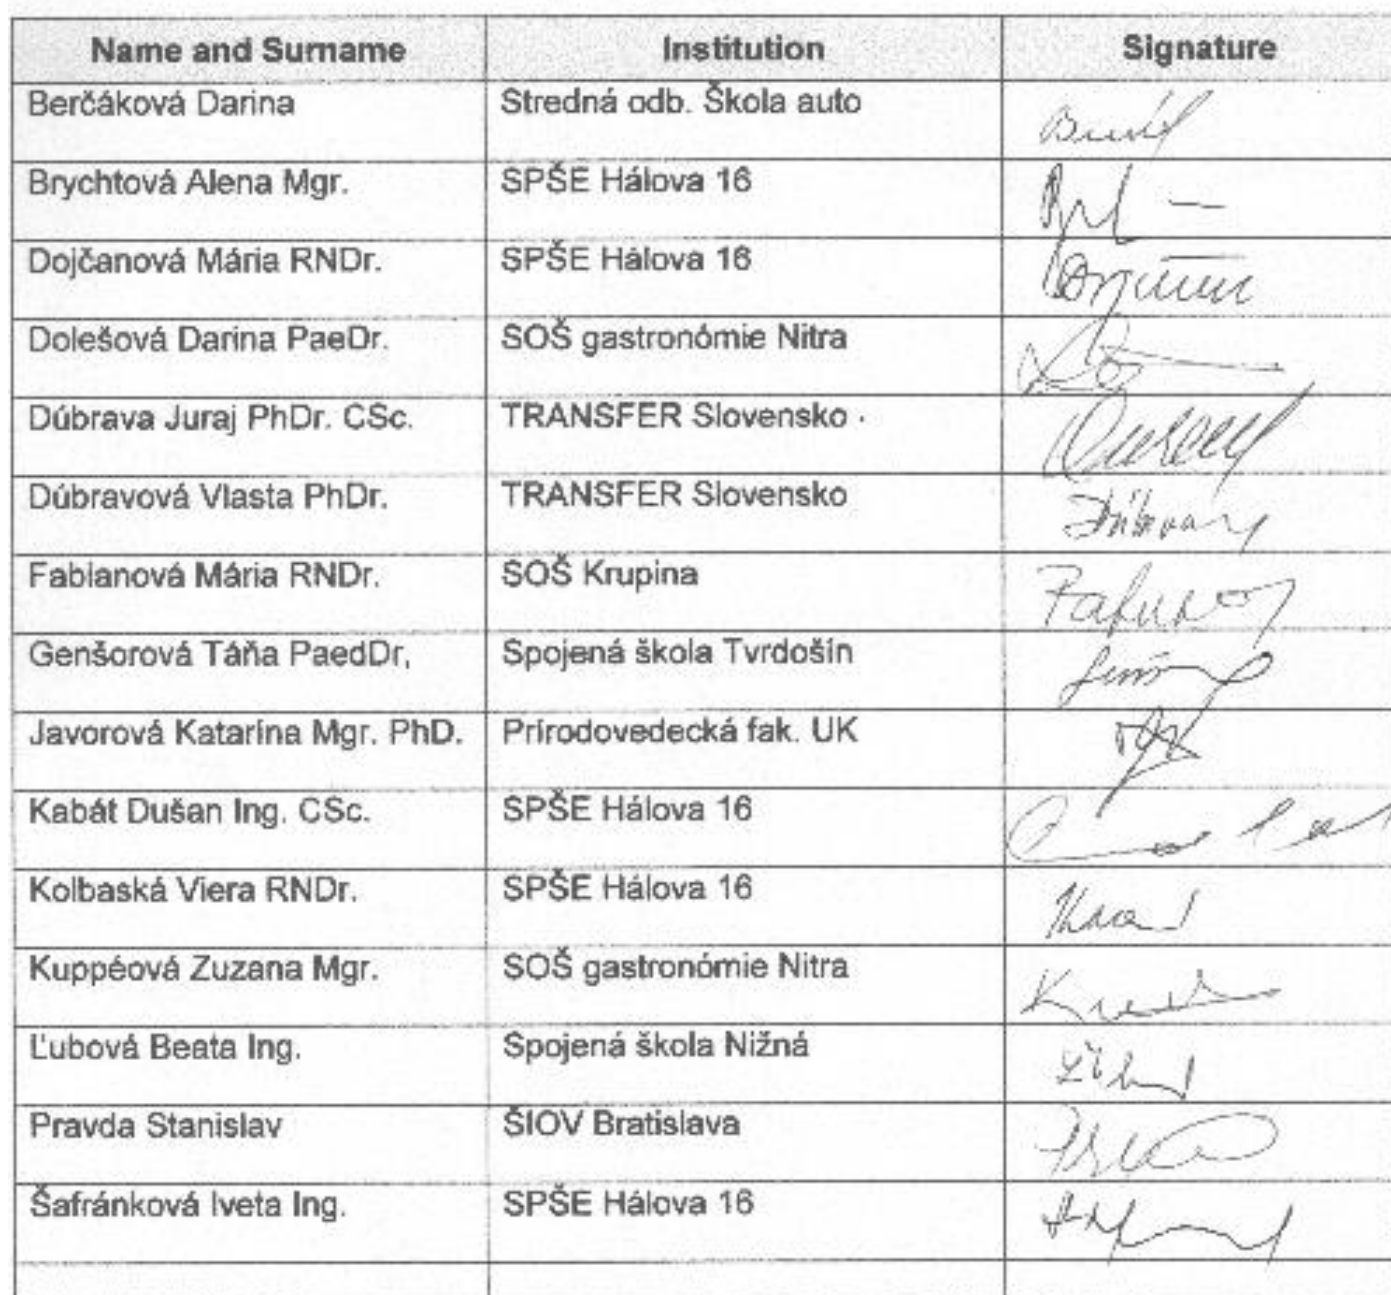 Name and Surname Institution Signature
Berčáková Darina Stredná odb. Škola auto
Brychtová Alena Mgr. SPŠE Hálova 16
Dojčanová Mária RNDr. SPŠE Hálova 16
Dolešová Darina PaeDr. SOŠ gastronómie Nitra
Dúbrava Juraj PhDr. CSc. TRANSFER Slovensko
Dúbravová Vlasta PhDr. TRANSFER Slovensko
Fabianová Mária RNDr. SOŠ Krupina
Genšorová Táňa PaedDr, Spojená škola Tvrdošín
Javorová Katarína Mgr. PhD. Prírodovedecká fak. UK
Kabát Dušan Ing. CSc. SPŠE Hálova 16
Kolbaská Viera RNDr. SPŠE Hálova 16
Kuppéová Zuzana Mgr. SOŠ gastronómie Nitra
Ľubová Beata Ing. Spojená škola Nižná
Pravda Stanislav ŠIOV Bratislava
Šafránková Iveta Ing. SPŠE Hálova 16